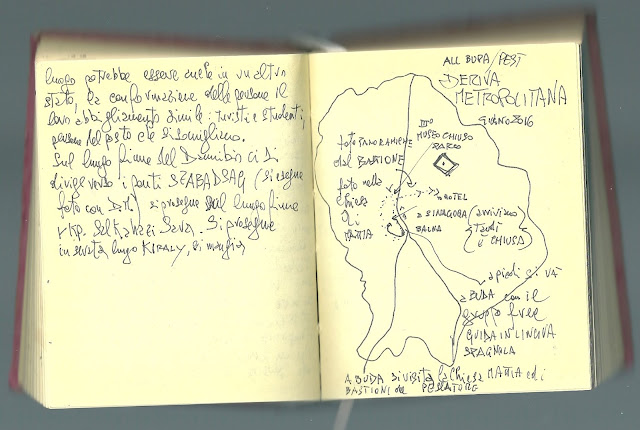 luogo potrebbe essere anche in un altro
stato, la conformazione delle persone il
loro abbigliamento simile: turisti e studenti,
persone del posto che si somigliano.
Sul lungo fiume del Danubio ci si
dirige verso i ponti SZABADSAG (si esegue
foto con) si prosegue sul lungo fiume
rkp. Si prosegue
in serata lungo KIRALY, si mangia
ALL BUDA/PEST
DERIVA
METROPOLITANA
GIUGNO 2016
MUSEO CHIUSO
PARCO
foto PANORAMICHE
dal BASTIONE
foto nella
chiesa
di
MATTIA
HOTEL
a SINAGOGA
BALNA
(arriviamo
tardi
è CHIUSA)
a piedi si va
a BUDA con il
gruppo free
GUIDA IN LINGUA
SPAGNOLA
A BUDA si visita la chiesa MATTIA ed i
BASTIONI dei PESCATORI